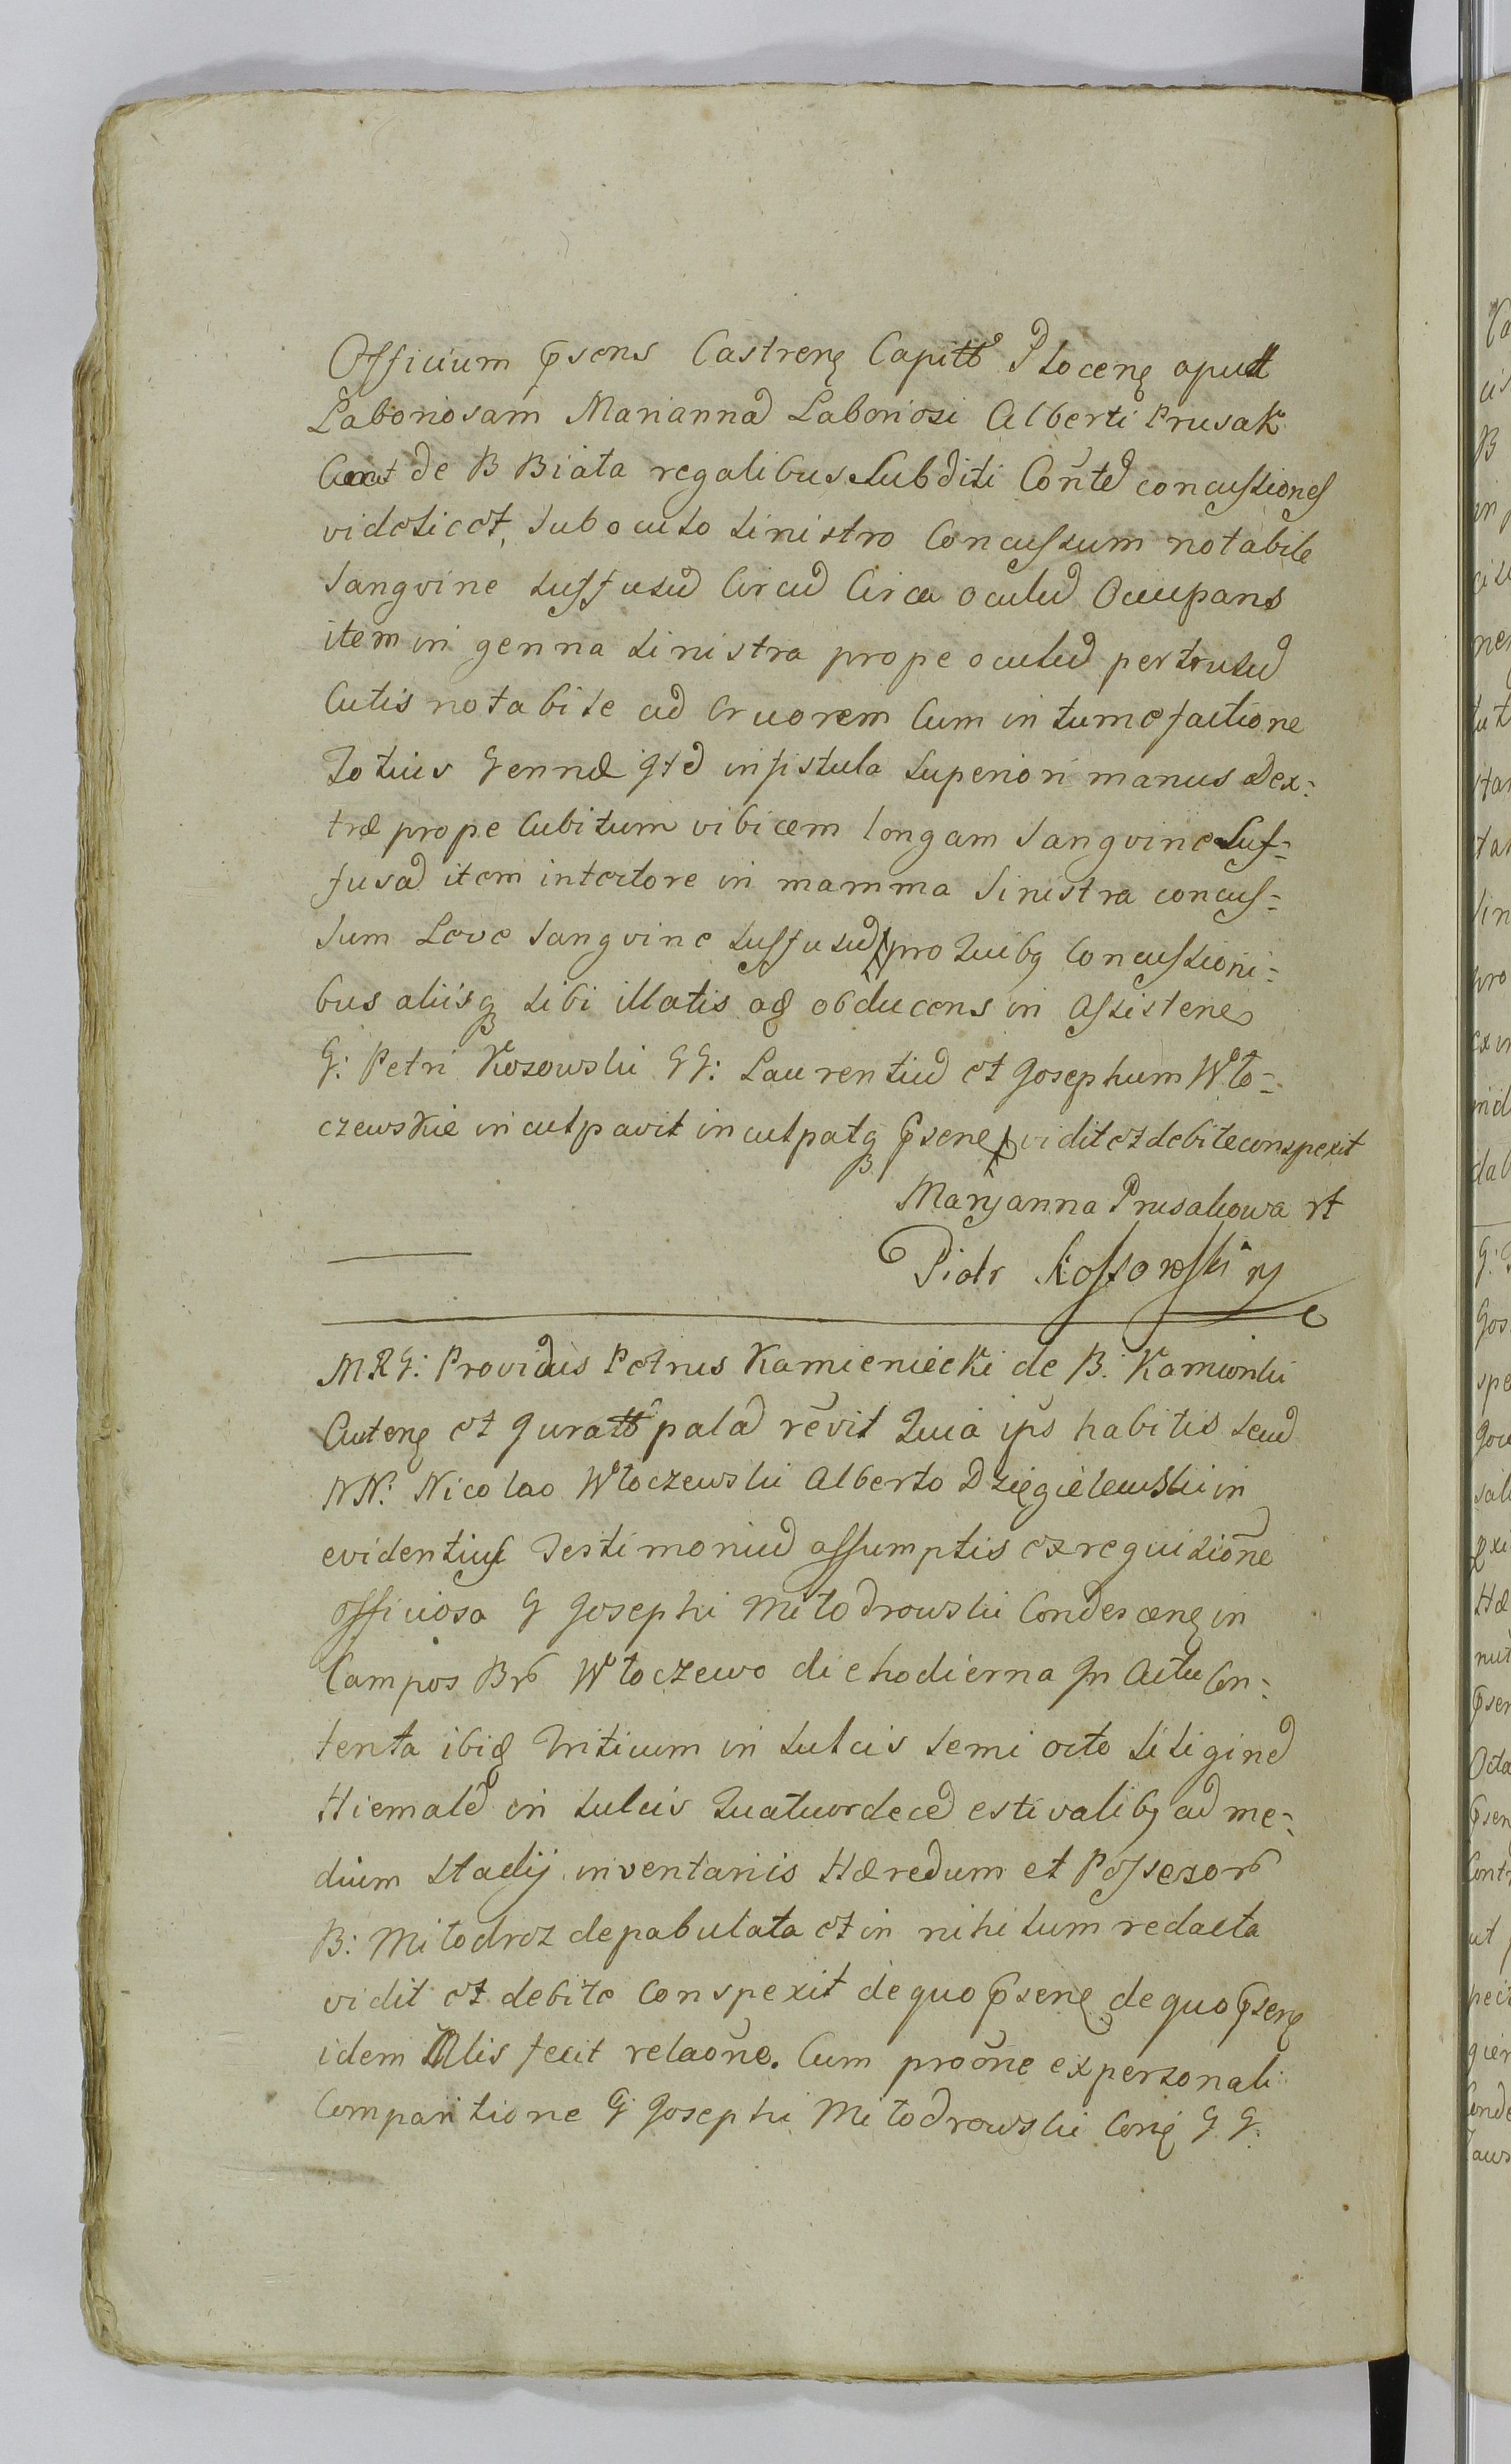 Officium p̄sens Castrenꝫ Capitło Płocenꝫ apud
Laboriosam Mariannā Laboriosi Alberti Prusak
de B Biała regalibus Subditi Con̄tē concussiones
videlicet, sub oculo sinistro Concussum notabile
sangvine suffusū Circū Circa oculū Occupans
item in genna sinistra prope oculū pertrusū
Cutis notabile ad Cruorem Cum intumefactione
Totius Gennæ itē in fistula superiori manus dex:
træ prope Cubitum vibicem longam Sangvine Suf-
fusā item in tectore in mamma Sinistra concus=
sum Leve Sangvine suffusū pro Quibꝫ Concussioni=
bus aliisqꝫ sibi illatis obducens in Assistenꝫ
G: Petri Kosowski GG: Laurentiū et Josephum Wło=
czewskie inculpavit inculpatqꝫ p̄senꝫ vidit et debite conspexit
Maryanna Prusakowa rt
Piotr Kossowski rj
M R G: Providus Petrus Kamieniecki de B. Kamionki
Autenꝫ et Juratło palā rēvit Quia ip̄s habitis secū
NN: Nicolao Włoczewski Alberto Dzięgielewski in
evidentius Testimoniū assumptis ex requisiōne
officiosa G Josephi Miłodrowski Condescenꝫ in
Campos Br̄ Włoczewo die hodierna In Actu Con=
tenta ibiꝫ Triticum in sulcis semi octo siliginē
Hiemalē in sulcis Quatuordecē estivalibꝫ ad me=
dium Stadij inventariis Hæredum et Possesor̄
B: Miłodroż depabulata et in nihilum redacta
vidit et debite Conspexit de quo p̄senꝫ de quo p̄senꝫ
idem Mlis fecit relaōne. Cum proōne ex personali
Comparitione G Josephi Miłodrowski Conꝫ G G.